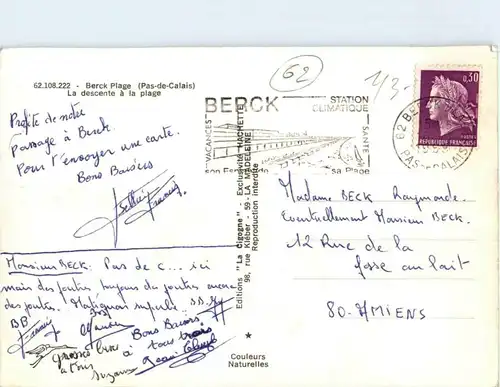 62.108.222 - Berck Plage (Pas-de-Calais)
La descente à la plage
Profite de notre
passage à Berck.
Pour t'envoyer une carte.
Bons Baisers
Monsieur BECK. Pas de c... ici
mais des joutes toujours des joutes avec
des joutes.
BB
Bons Baisers
à tous trois
Grosses bises
à tous
Suzanne
Jean Claude
62
BERCK
STATION
CLIMATIQUE
VACANCES
SANTÉ
sa Plage
62 BE
PAS-DE-CALAIS
0,30
REPUBLIQUE FRANÇAISE
Editions "La Cigogne" - Exclusivité HACHETTE
98, rue Kléber - 59 - LA MADELEINE
Reproduction interdite
Madame BECK Raymonde.
Eventuellement Monsieur BECK.
12 Rue de la
fosse au lait
80. AMIENS
Couleurs
Naturelles